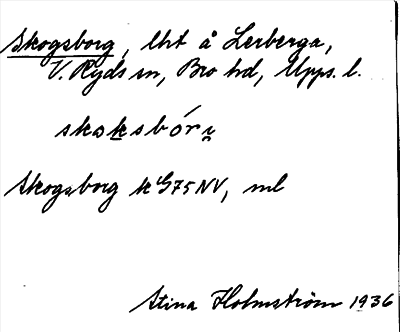 Skogsborg, lht å Lerberga,
V. Ryds sn, Bro hd, Upps. l.
skoksbór
Skogsborg k G75NV, ml
Stina Holmström 1936